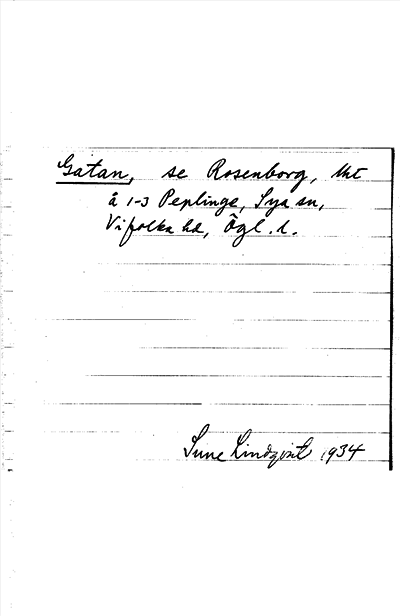 Gatan, se Rosenborg, lht
å 1-3 Peplinge, Sya sn,
Vifolka hd, Ögl. l.
Sune Lindqvist 1934